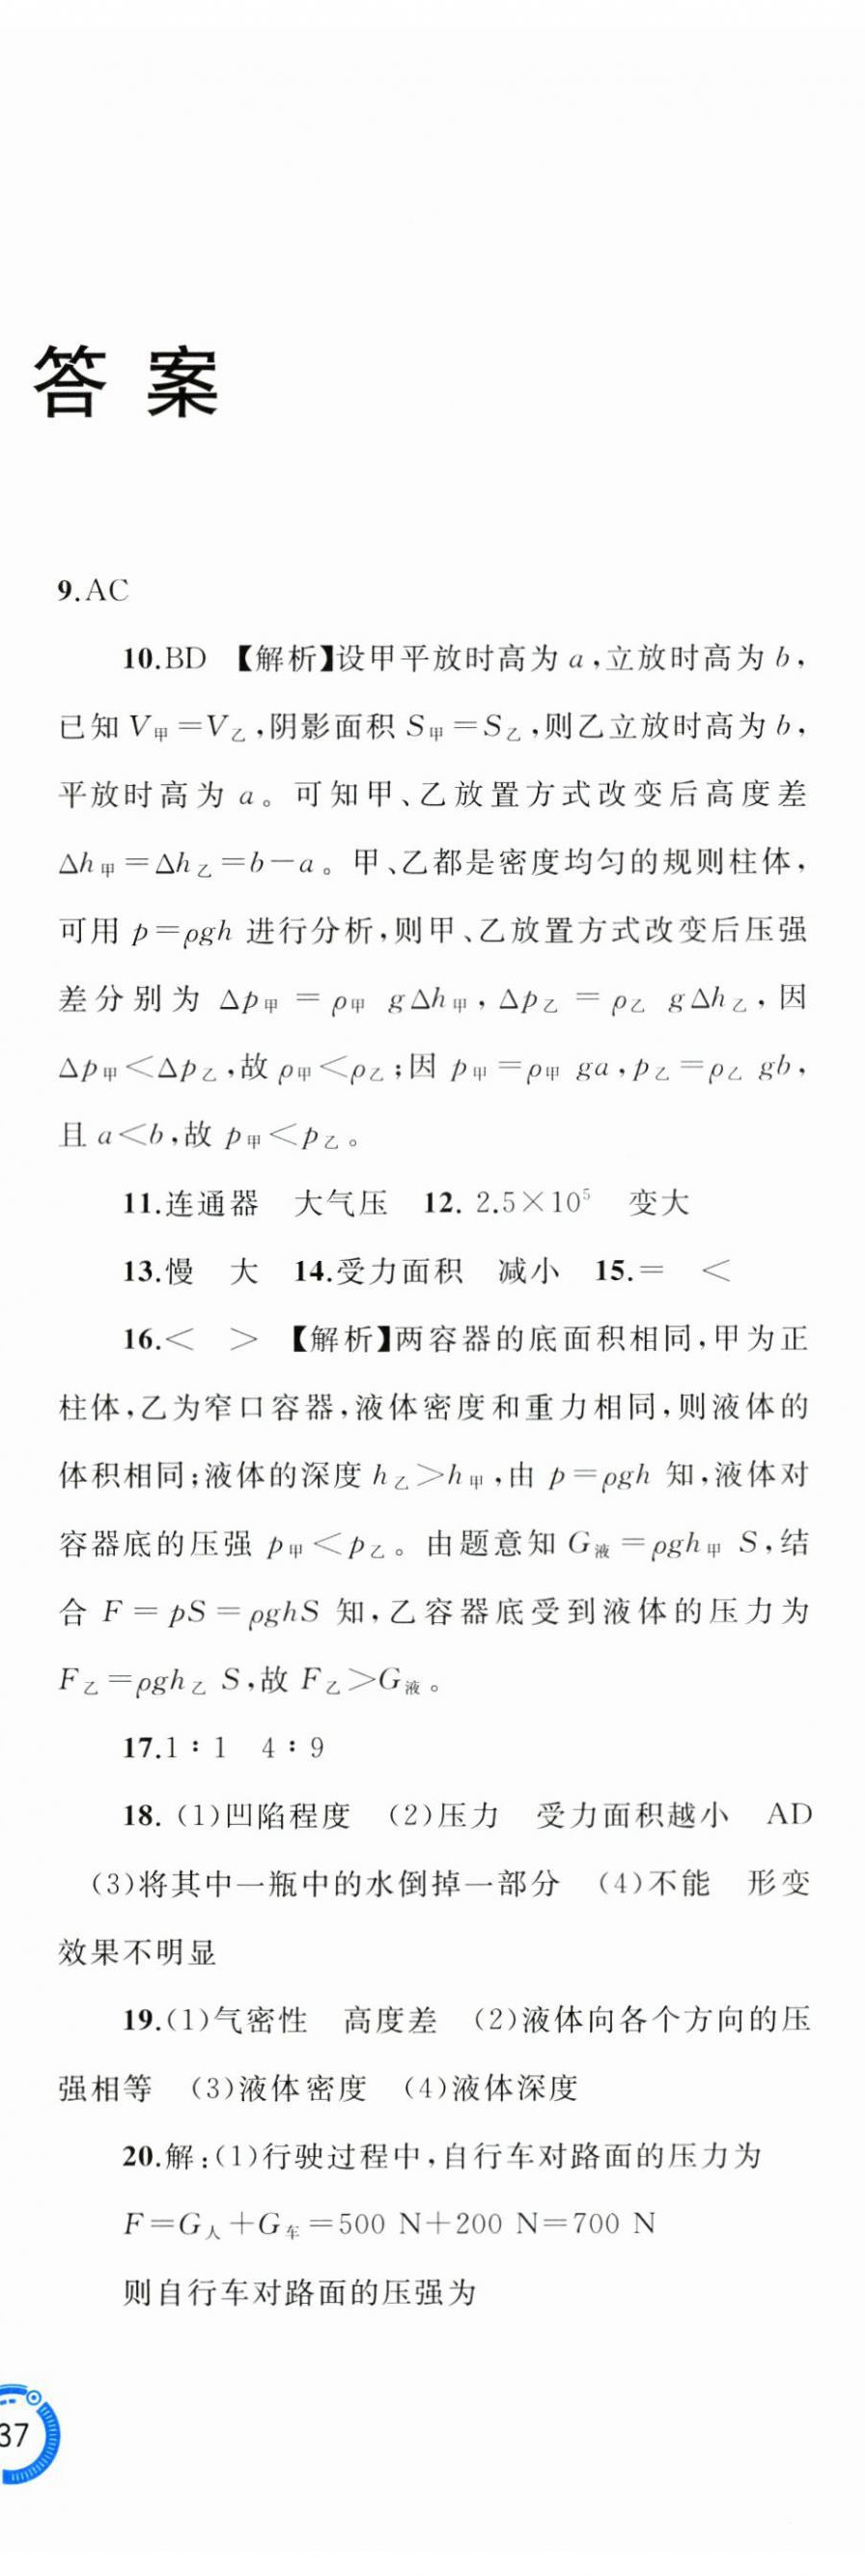 答案
9.AC
10.BD 【解析】设甲平放时高为 a,立放时高为 b,
已知 V甲=V乙,阴影面积 S甲=S乙,则乙立放时高为 b,
平放时高为 a。可知甲、乙放置方式改变后高度差
Δh甲=Δh乙=b-a。甲、乙都是密度均匀的规则柱体,
可用 p=ρgh 进行分析,则甲、乙放置方式改变后压强
差分别为 Δp甲=ρ甲 gΔh甲,Δp乙=ρ乙 gΔh乙,因
Δp甲<Δp乙,故 ρ甲<ρ乙;因 p甲=ρ甲 ga,p乙=ρ乙 gb,
且 a<b,故 p甲<p乙。
11.连通器 大气压 12. 2.5×10⁵ 变大
13.慢 大 14.受力面积 减小 15.= <
16.< > 【解析】两容器的底面积相同,甲为正
柱体,乙为窄口容器,液体密度和重力相同,则液体的
体积相同;液体的深度 h乙>h甲,由 p=ρgh 知,液体对
容器底的压强 p甲<p乙。由题意知 G液=ρgh甲 S,结
合 F=pS=ρghS 知,乙容器底受到液体的压力为
F乙=ρgh乙 S,故 F乙>G液。
17.1∶1 4∶9
18. (1)凹陷程度 (2)压力 受力面积越小 AD
(3)将其中一瓶中的水倒掉一部分 (4)不能 形变
效果不明显
19.(1)气密性 高度差 (2)液体向各个方向的压
强相等 (3)液体密度 (4)液体深度
20.解:(1)行驶过程中,自行车对路面的压力为
F=G人+G车=500 N+200 N=700 N
则自行车对路面的压强为
37